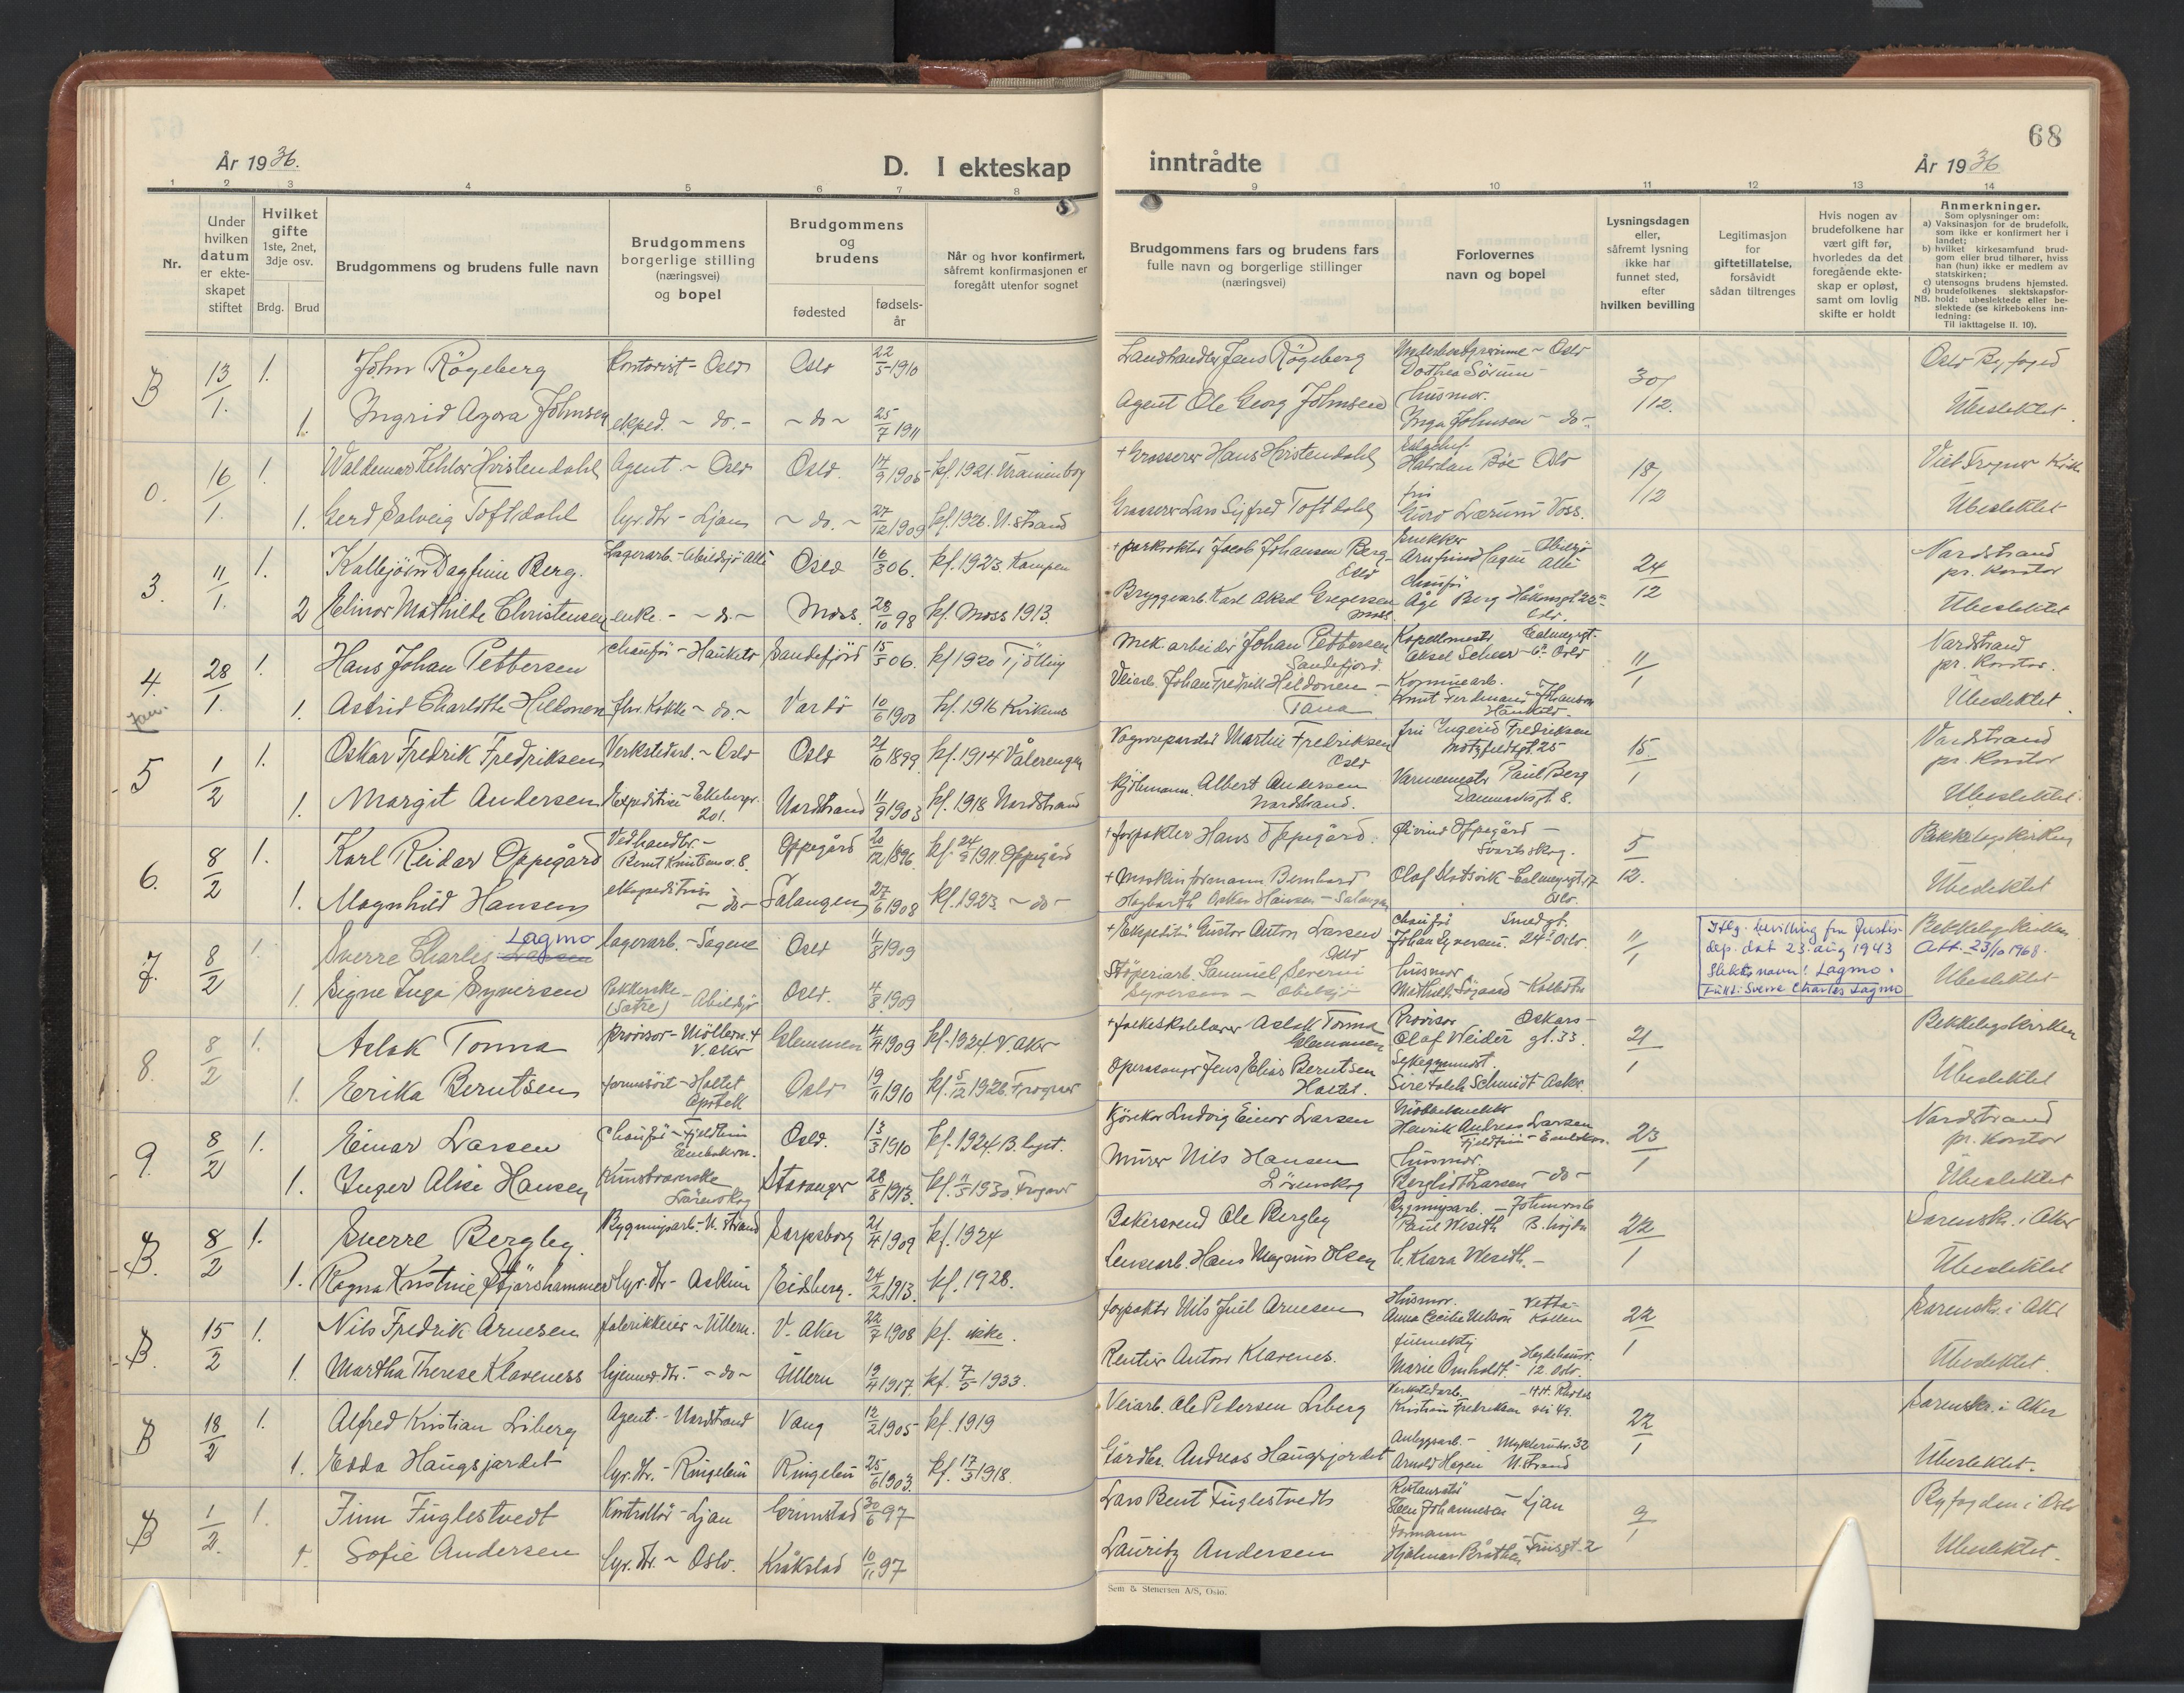 67
År 1936.
D. I ekteskap
inntrådte
68
År 1936
1 2 3 4 5 6 7 8 9 10 11 12 13 14
Nr.
Under hvilken datum er ekteskapet stiftet
Hvilket gifte 1ste, 2net, 3dje osv.
Brdg. Brud
Brudgommens og brudens fulle navn
Brudgommens borgerlige stilling (næringsvei) og bopel
Brudgommens og brudens
fødested
fødselsår
Når og hvor konfirmert, såfremt konfirmasjonen er foregått utenfor sognet
Brudgommens fars og brudens fars fulle navn og borgerlige stillinger (næringsvei)
Forlovernes navn og bopel
Lysningsdagen eller, såfremt lysning ikke har funnet sted, efter hvilken bevilling
Legitimasjon for giftetillatelse, forsåvidt sådan tiltrenges
Hvis nogen av brudefolkene har vært gift før, hvorledes da det foregående ekteskap er opløst, samt om lovlig skifte er holdt
Anmerkninger.
Som oplysninger om:
a) Vaksinasjon for de brudefolk, som ikke er konfirmert her i landet;
b) hvilket kirkesamfund brudgom eller brud tilhører, hviss han (hun) ikke er medlem av statskirken;
c) utensogns brudens hjemsted.
d) brudefolkenes slektskapsforhold: ubeslektede eller beslektede (se kirkebokens innledning:
NB. Til iakttagelse II. 10).
B 13/1. 1. John Rögeberg Kontorist - Oslo Oslo 22/5 1910 Landhandler Jens Rögeberg Dorthea Sörum Oslo 30/12. Oslo Byfoged
1. Ingrid Azora Johnsen eksped. - do. - - do - 25/7 1911 Agent Ole Georg Johnsen husmor. Inga Johnsen - do - Ubeslektet.
0. 16/1. 1. Waldemar Kehler Hvistendahl Agent - Oslo Oslo. 14/9 1906 kf. 1921. Uranienborg + Grosserer Hans Hvistendahl Halvdan Böe Oslo 18/12
1. Gerd Solveig Toftdahl hj. dtr - Ljan - do. - 27/12 1909 kf. 1926. N. strand Grosserer Lars Sigfred Toftdahl fru Guro Lærum Voss. Ubeslektet
3. 11/1. 1. Kallbjörn Dagfinn Berg. Lagerarb. - Abildsjö Alle Oslo 16/3 06. kf. 1923. Kampen Jacob Johansen Berg Oslo snekker Arnfinn Hagen Abildsjö Alle 24/12 Nordstrand pr. Kontor
2 Elinor Mathilde Christensen enke. - do. - Moss. 28/10 98 kf. Moss 1913. Bryggearb. Karl Aksel Gregersen Moss chauför Åge Berg Oslo. Ubeslektet
4. 28/1. 1. Hans Johan Pettersen chauför - Hauketo Sandefjord 15/5 06. kf 1920 Tjölling Mek. arbeider Johan Pettersen Sandefjord. Aksel Scheer Oslo 11/1 Nordstrand pr. Kontor.
Jan. 1. Astrid Charlotte Heldonen fhv. Kokke - do. - Vardö 10/6 1900 kf. 1916 Veiarb. Johan Fredrik Heldonen - Tana Kommunearb. Knut Ferdinand Johansen Hauketo. Ubeslektet.
5 1/2 1. Oskar Fredrik Fredriksen Verkstedarb. - Oslo Oslo 21/10 1899. kf. 1914 Vålerengen Vognreparatör Martin Fredriksen Oslo fru Ingerid Fredriksen Motzfeldtsgt. 25 15/1 Nordstrand pr. Kontor
1. Margit Andersen Expeditrise - Ekebergv. 201. Nordstrand 11/9 1903 kf. 1918 Nordstrand Albert Andersen Nordstrand. Varmemester Paul Berg Danmarksgt. 8. Ubeslektet.
6. 8/2 1. Karl Reidar Oppegård Vedhandler. - Bernt Knutsens v. 8. Oppegård 20/12 1896. kf. 24/9 1911. Oppegård + forpakter Hans Oppegård. Öivind Oppegård - Svartskog. 5/12. Bekkelagskirken
1. Magnhild Hansen ekspeditrise - do - Salangen 27/6 1908 kf. 1923 - do - + Maskinformann Bernhard Hagbarth Oskar Hansen - Salangen Olof Slotsvik - Calmeyersgt. 17 Oslo. Ubeslektet
7. 8/2 1. Sverre Charles Larsen Lagmo lagerarb. - Sagene Oslo 11/8 1909 + Ekspeditör Gustav Anton Larsen Oslo chauför Johan Syversen. Smedgt. 24 Oslo. 11/1 Bekkelagskirken
Ifölg. bevilling fra Justis-
dep. dat 23. aug 1943
Slektsnavn: Lagmo.
Fullt: Sverre Charles Lagmo
Att. 23/10 1968.
1. Signe Inga Syversen Pakkerske - (Sætre) Abildsjö Oslo. 4/8 1909 Stöperiarb. Samuel Severin Syversen - Abildsjö husmor. Mathilde Sögaard - Kolbotn Ubeslektet
8. 8/2 1. Aslak Tonna provisor - Möllerv. 4 V. Aker Glemmen 4/4 1909 kf. 1924. V. Aker + folkeskolelærer Aslak Tonna Glemmen Provisor Olaf Weider Oskars gt. 33. 21/1 Bekkelagskirken
1. Erika Berntsen - Holtet Apotek Oslo 19/11 1910 kf. 5/12 1926. Frogner Operasanger Jens Elias Berntsen Holtet. Schmidt Asker. Ubeslektet
9. 8/2 1. Einar Larsen Chauför - Fjeldheim Oslo. 13/3 1910 kf. 1924. B. laget. Kjörekar Ludvig Einar Larsen Henrik Andreas Larsen 23/1 Nordstrand pr. Kontor
1. Inger Alise Hansen Lörenskog Stavanger 28/8 1913. kf. 11/5 1930. Frogner Murer Nils Hansen Lörenskog husmor. Berglioth Larsen - do - Ubeslektet
B. 8/2 1. Sverre Bergby. Bygningsarb. - N. strand Sarpsborg 21/4 1909 kf. 1924 Bakersvend Ole Bergby Bygningsarb. Paul Weseth 22/1 Sorenskr. i Aker
1. Ragna Kristine Stjørshammer hj. dtr - Askim Eidsberg. 24/2 1913. kf. 1928. Lensearb. Hans Magnus Olsen Klara Weseth. - Ubeslektet
B. 15/2 1. Nils Fredrik Arnesen fabrikkeier - Ullern. V. Aker 22/7 1908 kf. ikke. forpakter Nils Juel Arnesen Husmor. Anna Cecilie Nelson Vettakollen 22/1 Sorenskr. i Aker
1. Martha Therese Klaveness hjemmev. dtr. - do - Ullern 19/4 1917. kf. 7/5 1933. Rentier Anton Klavenes. Marie Omholdt - 12. Oslo. Ubeslektet.
B 18/2 1. Alfred Kristian Liberg Agent - Nordstrand Vang 12/2 1905 kf. 1919 Veiarb. Ole Pedersen Liberg Verkstedarb. Kristian Fredriksen vei 49. 22/1 Sorenskr. i Aker
1. Edda Haugsjardet hj. dtr. - Ringebu Ringebu 25/6 1903. kf. 17/3 1918. Gårdbr. Andreas Haugsjordet Anleggsarb. - Arnold Hagen Mykleruds. 32 N. strand Ubeslektet.
B 1/2. 1. Finn Fuglestvedt Kontrollör - Ljan Grimstad 30/6 97 Lars Bent Fuglestvedt Restauratör Steen Johannesen Ljan 9/1 Byfogden i Oslo
1. Sofie Andersen hj. dtr. - Oslo. Kråkstad 10/11 97 Lauritz Andersen Formann Hjalmar Bråthen Friisgt. 2 Ubeslektet.
Sem & Stenersen A/S, Oslo.